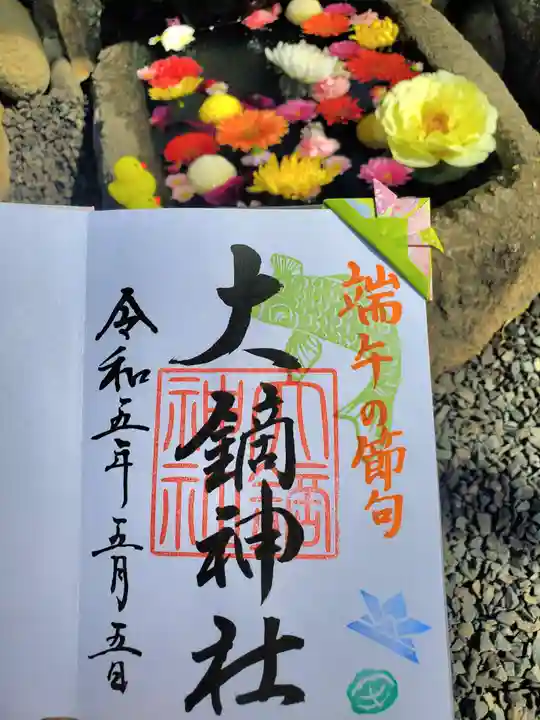 端午の節句
大鏑神社
令和五年五月五日
大鏑神社